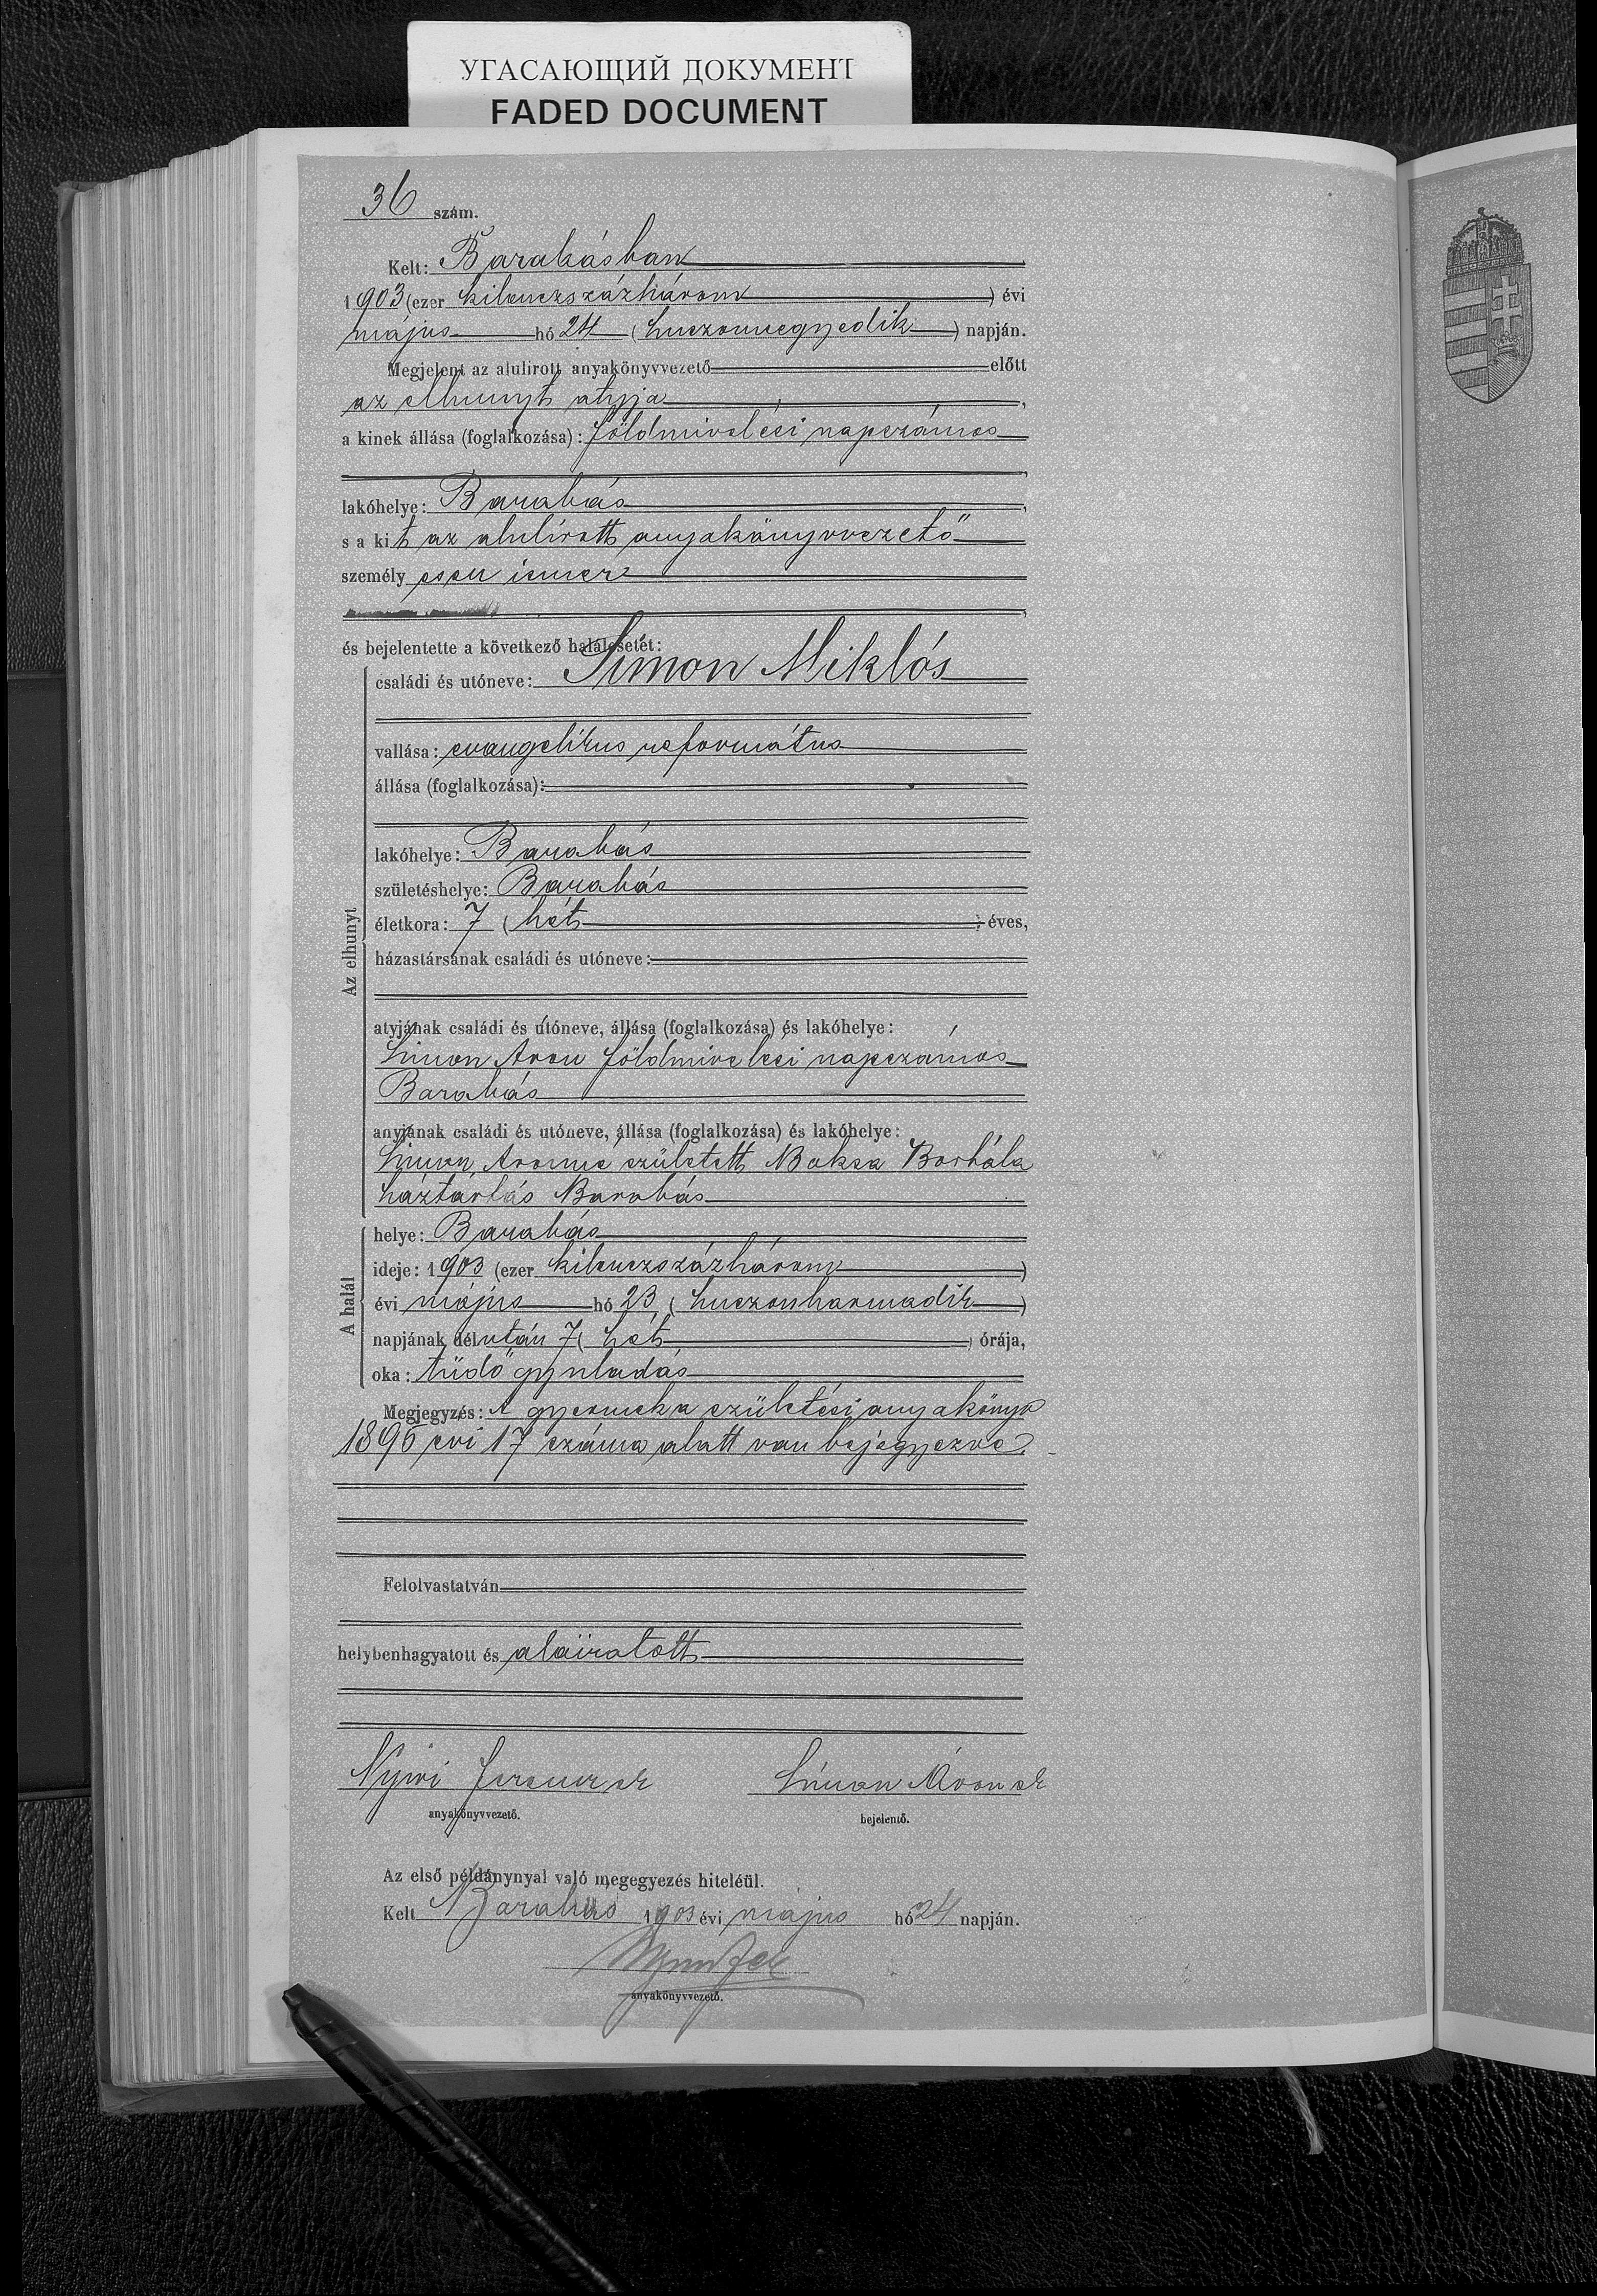 УГАСАЮЩИЙ ДОКУМЕНТ
FADED DOCUMENT
36 szám.
Kelt: Barabásban
1903 (ezer kilenczszázhárom) évi
május hó 24 (huszonnegyedik) napján.
Megjelent az alulirott anyakönyvvezető előtt
az elhunyt atyja,
a kinek állása (foglalkozása): földmivelési napszámos
lakóhelye: Barabás,
s a kit az alulírott anyakönyvvezető
személyesen ismer
és bejelentette a következő halálesetet:
Az elhunyt
családi és utóneve: Simon Miklós
vallása: evangelikus református
állása (foglalkozása):
lakóhelye: Barabás
születéshelye: Barabás
életkora: 7 (hét) éves,
házastársának családi és utóneve:
atyjának családi és utóneve, állása (foglalkozása) és lakóhelye:
Simon Áron földmivelési napszámos
Barabás
anyjának családi és utóneve, állása (foglalkozása) és lakóhelye:
Simon Áronné született Baksa Borbála
háztartás Barabás
A halál
helye: Barabás
ideje: 1903 (ezer kilenczszázhárom)
évi május hó 23 (huszonharmadik)
napjának délután 7 (hét) órája,
oka: tüdőgyuladás
Megjegyzés: A gyermek a születési anyakönyv
1896 évi 17 száma alatt van bejegyezve.
Felolvastatván
helybenhagyatott és aláiratott
Nyiri Ferencz sk Simon Áron sk
anyakönyvvezető. bejelentő.
Az első példánynyal való megegyezés hiteléül.
Kelt Barabás 1903 évi május hó 24 napján.
anyakönyvvezető.